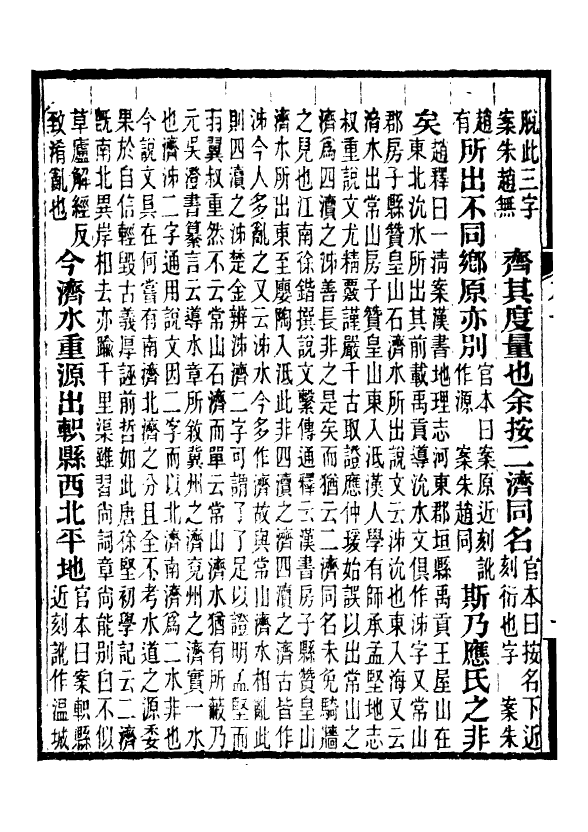 脫此三字
案朱趙無
齊其度量也余按二濟同名
官本曰按名下近
刻衍也字　案朱
趙
有
所出不同鄉原亦別
官本曰案原近刻訛
作源　案朱趙同
斯乃應氏之非
矣
趙釋曰一清案漢書地理志河東郡垣縣禹貢王屋山在
東北沇水所出其前載禹貢導沇水文俱作泲字又常山
郡房子縣贊皇山石濟水所出說文云泲沇也東入海又云
濟水出常山房子贊皇山東入泜漢人學有師承孟堅地志
叔重說文尤精覈謹嚴千古取證應仲瑗始誤以出常山之
濟爲四瀆之泲善長非之是矣而猶云二濟同名未免騎牆
之見也江南徐鍇撰說文繫傳通釋云漢書房子縣贊皇山
濟水所出東至廮陶入泜此非四瀆之濟四瀆之濟古皆作
泲今人多亂之又云泲水今多作濟故與常山濟水相亂此
則四瀆之泲楚金辨泲濟二字可謂了了足以證明孟堅而
羽翼叔重然不云常山石濟而單云常山濟水猶有所蔽乃
元吳澄書纂言云導水章所敘冀州之濟兗州之濟實一水
也濟泲二字通用說文因二字而以北濟南濟爲二水非也
今說文具在何嘗有南濟北濟之分且全不考水道之源委
果於自信輕毀古義厚誣前哲如此唐徐堅初學記云二濟
旣南北異岸相去亦踰千里渠雖習尚詞章尚能別臼不似
草廬解經反
致淆亂也
今濟水重源出軹縣西北平地
官本曰案軹縣
近刻訛作溫城